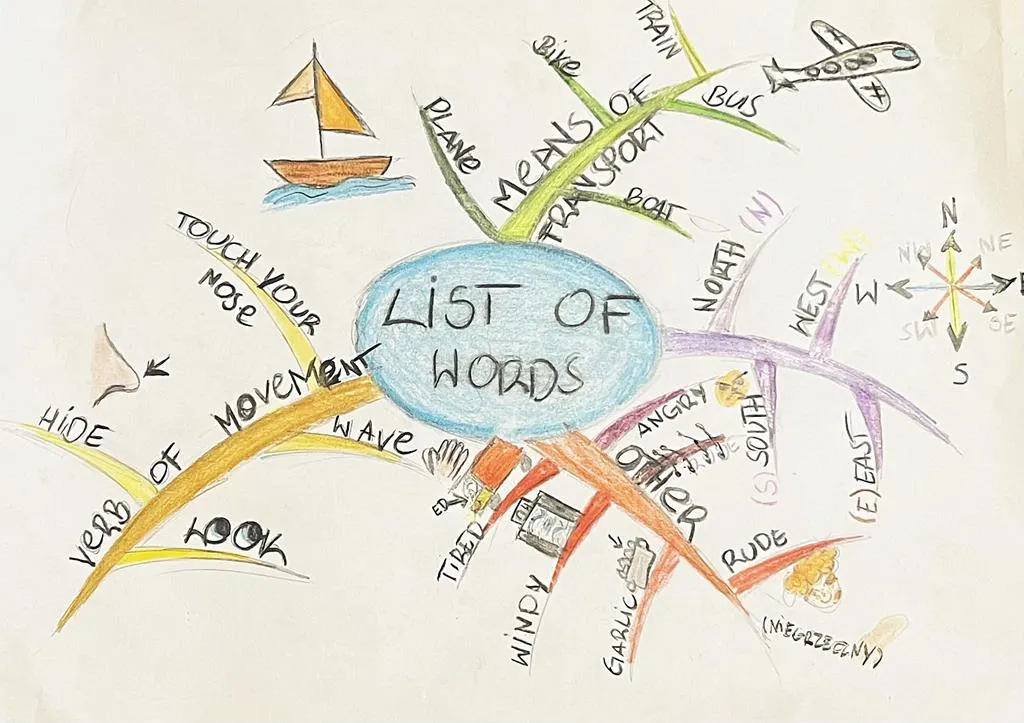 LIST OF
WORDS
MEANS OF
TRANSPORT
PLANE
BIKE
TRAIN
BUS
BOAT
NORTH (N)
WEST (W)
SOUTH (S)
EAST (E)
N
NE
SE
S
SW
W
NW
OTHER
ANGRY
RUDE
(NIEGRZECZNY)
GARLIC
WINDY
TIRED
ED
VERB OF MOVEMENT
TOUCH YOUR
NOSE
HIDE
WAVE
LOOK